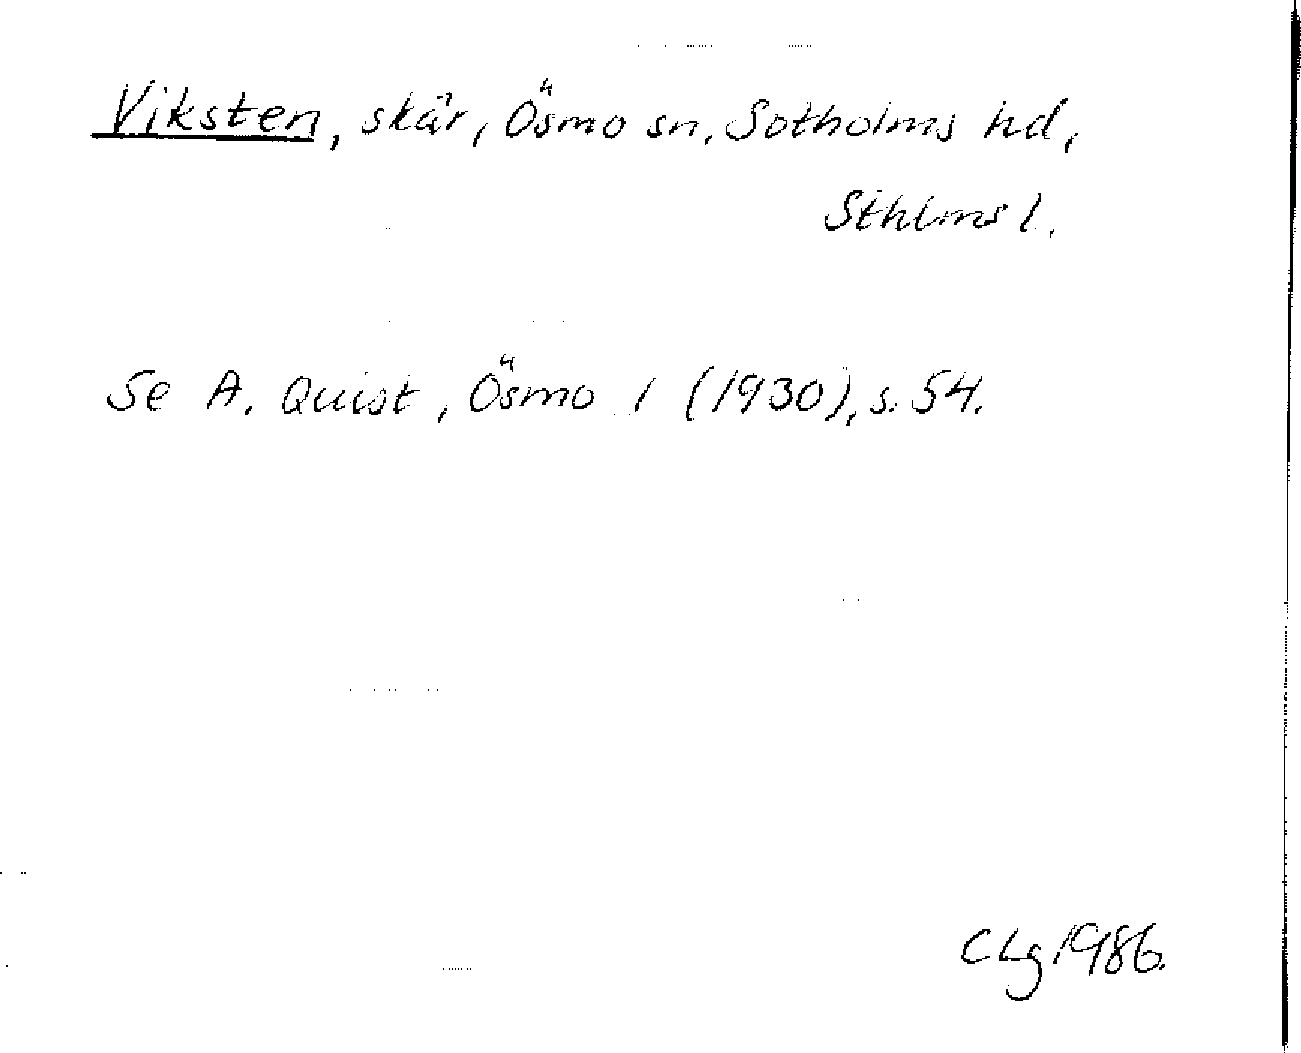 Viksten, skär, Ösmo sn, Sotholms hd,
Sthlms l.
Se A. Quist, Ösmo 1 (1930), s. 54.
CLg 1986.